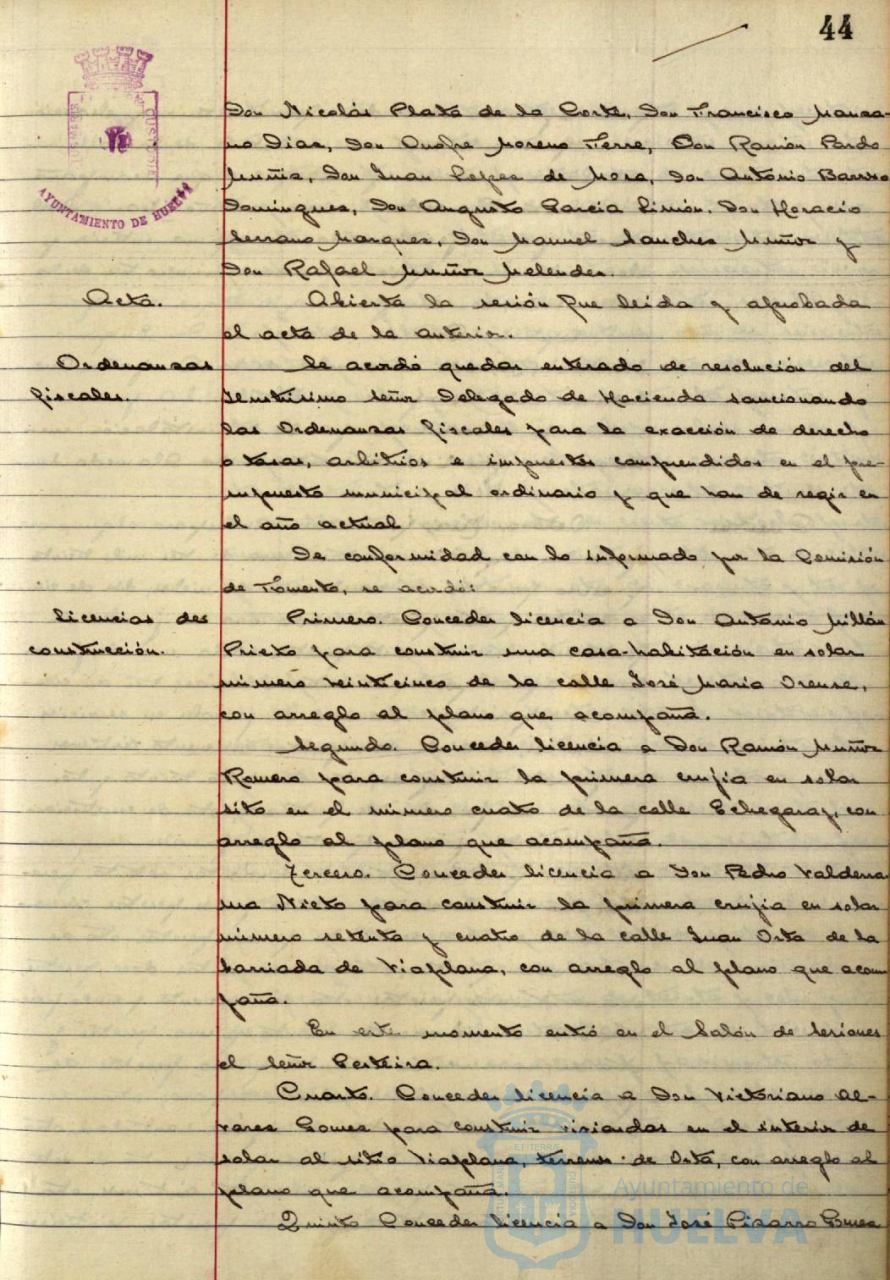 44
AYUNTAMIENTO DE HUELVA
Don Nicolás Plata de la Corte, Don Francisco Manza-
no Dias, Don Onofre Moreno Terre, Don Ramón Pardo
Muñis, Don Juan Lopes de Mora, Don Antonio Barroso
Domingues, Don Augusto Garcia Limón, Don Horacio
Serrano Marques, Don Manuel Sanches Muñoz y
Don Rafael Muñoz Melendes.
Acta.
Abierta la sesión fue leida y aprobada
el acta de la anterior.
Ordenanzas
fiscales.
Se acordó quedar enterado de resolución del
Ilustrisimo Señor Delegado de Hacienda sancionando
las Ordenanzas fiscales para la exacción de derecho
o tasas, arbitrios e impuestos comprendidos en el pre-
supuesto municipal ordinario y que han de regir en
el año actual
De conformidad con lo informado por la Comisión
de Fomento, se acordó:
Licencias de
construcción.
Primero. Conceder licencia a Don Antonio Millán
Prieto para construir una casa-habitación en solar
número veinticinco de la calle José Maria Orense,
con arreglo al plano que acompaña.
Segundo. Conceder licencia a Don Ramón Muñoz
Romero para construir la primera crujia en solar
sito en el número cuatro de la calle Echegaray, con
arreglo al plano que acompaña.
Tercero. Conceder licencia a Don Pedro Valderra-
ma Nieto para construir la primera crujia en solar
número setenta y cuatro de la calle Juan Orta de la
barriada de Viaplana, con arreglo al plano que acom
paña.
En este momento entró en el Salón de Sesiones
el Señor Terteira.
Cuarto. Conceder licencia a Don Victoriano Al-
vares Gomes para construir viviendas en el interior de
solar al sitio Viaplana, terrenos de Orta, con arreglo al
plano que acompaña.
Quinto Conceder licencia a Don José Pizarro
Ayuntamiento de
HUELVA